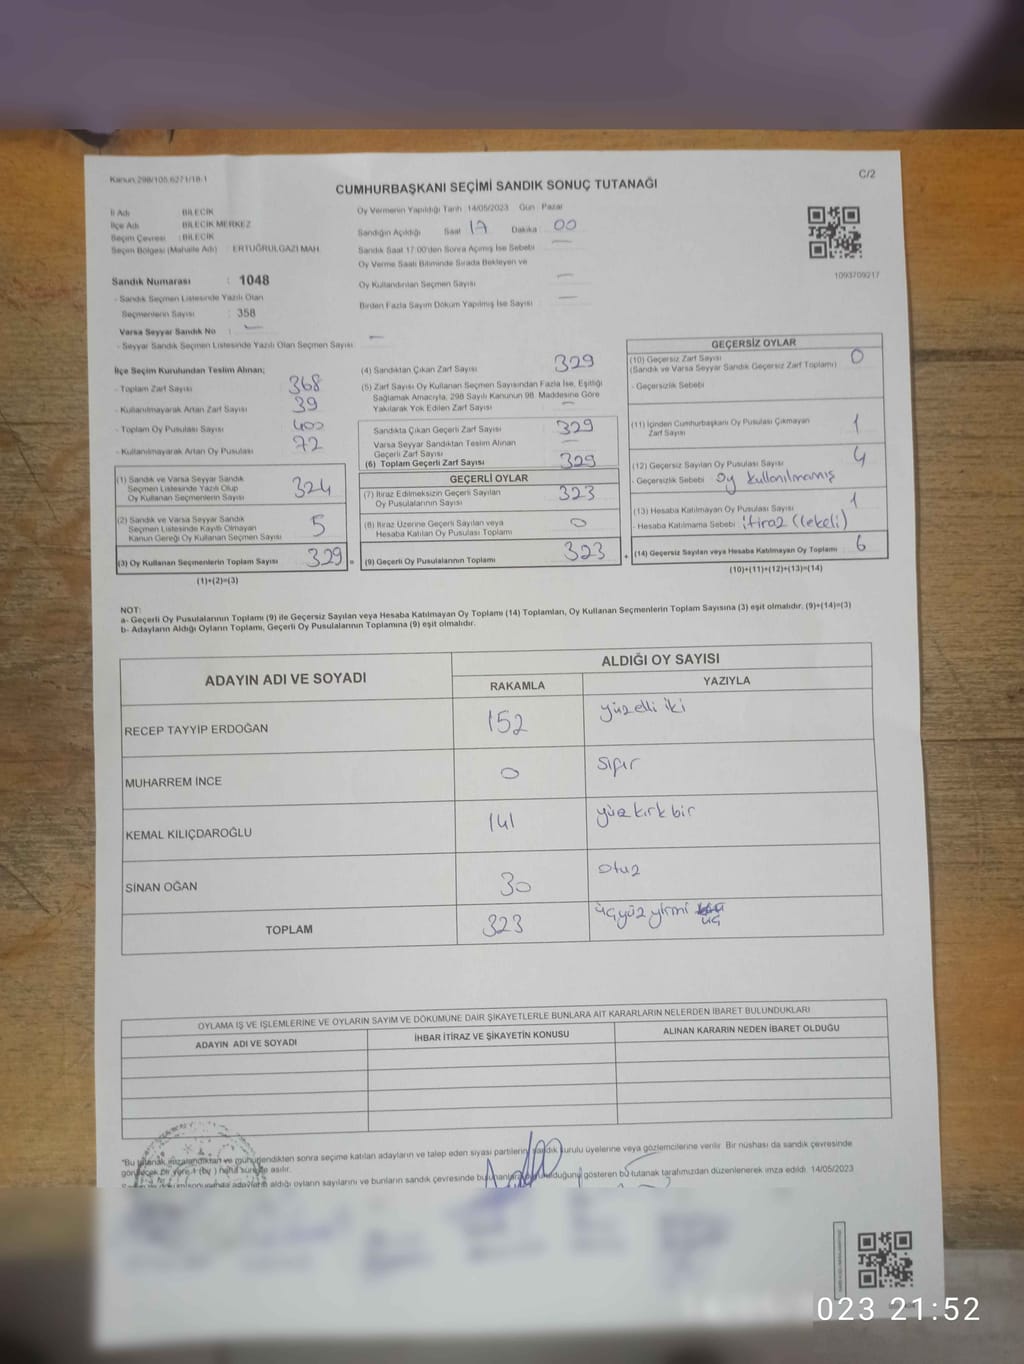 Kanun 298/105.6271/18-1
C/2
CUMHURBAŞKANI SEÇİMİ SANDIK SONUÇ TUTANAĞI
İl Adı BİLECİK
İlçe Adı BİLECİK MERKEZ
Seçim Çevresi : BİLECİK
Seçim Bölgesi (Mahalle Adı) : ERTUĞRULGAZİ MAH.
Sandık Numarası : 1048
- Sandık Seçmen Listesinde Yazılı Olan
Seçmenlerin Sayısı : 358
Varsa Seyyar Sandık No : —
- Seyyar Sandık Seçmen Listesinde Yazılı Olan Seçmen Sayısı —
Oy Vermenin Yapıldığı Tarih 14/05/2023 Gün Pazar
Sandığın Açıldığı Saat 17 Dakika 00
Sandık Saat 17.00'den Sonra Açılmış İse Sebebi —
Oy Verme Saati Bitiminde Sırada Bekleyen ve
Oy Kullandırılan Seçmen Sayısı —
Birden Fazla Sayım Döküm Yapılmış İse Sayısı —
1093709217
İlçe Seçim Kurulundan Teslim Alınan;
- Toplam Zarf Sayısı 368
- Kullanılmayarak Artan Zarf Sayısı 39
- Toplam Oy Pusulası Sayısı 400
- Kullanılmayarak Artan Oy Pusulası 72
(1) Sandık ve Varsa Seyyar Sandık
Seçmen Listesinde Yazılı Olup
Oy Kullanan Seçmenlerin Sayısı 324
(2) Sandık ve Varsa Seyyar Sandık
Seçmen Listesinde Kayıtlı Olmayan
Kanun Gereği Oy Kullanan Seçmen Sayısı 5
(3) Oy Kullanan Seçmenlerin Toplam Sayısı 329 =
(1)+(2)=(3)
(4) Sandıktan Çıkan Zarf Sayısı 329
(5) Zarf Sayısı Oy Kullanan Seçmen Sayısından Fazla İse, Eşitliği
Sağlamak Amacıyla, 298 Sayılı Kanunun 98. Maddesine Göre
Yakılarak Yok Edilen Zarf Sayısı —
Sandıkta Çıkan Geçerli Zarf Sayısı 329
Varsa Seyyar Sandıktan Teslim Alınan
Geçerli Zarf Sayısı —
(6) Toplam Geçerli Zarf Sayısı 329
GEÇERLİ OYLAR
(7) İtiraz Edilmeksizin Geçerli Sayılan
Oy Pusulalarının Sayısı 323
(8) İtiraz Üzerine Geçerli Sayılan veya
Hesaba Katılan Oy Pusulası Toplamı 0
(9) Geçerli Oy Pusulalarının Toplamı 323 +
GEÇERSİZ OYLAR
(10) Geçersiz Zarf Sayısı 0
(Sandık ve Varsa Seyyar Sandık Geçersiz Zarf Toplamı)
- Geçersizlik Sebebi
(11) İçinden Cumhurbaşkanı Oy Pusulası Çıkmayan
Zarf Sayısı 1
(12) Geçersiz Sayılan Oy Pusulası Sayısı 4
- Geçersizlik Sebebi oy kullanılmamış
(13) Hesaba Katılmayan Oy Pusulası Sayısı 1
- Hesaba Katılmama Sebebi itiraz (lekeli)
(14) Geçersiz Sayılan veya Hesaba Katılmayan Oy Toplamı 6
(10)+(11)+(12)+(13)=(14)
NOT:
a- Geçerli Oy Pusulalarının Toplamı (9) ile Geçersiz Sayılan veya Hesaba Katılmayan Oy Toplamı (14) Toplamları, Oy Kullanan Seçmenlerin Toplam Sayısına (3) eşit olmalıdır. (9)+(14)=(3)
b- Adayların Aldığı Oyların Toplamı, Geçerli Oy Pusulalarının Toplamına (9) eşit olmalıdır.
ADAYIN ADI VE SOYADI
ALDIĞI OY SAYISI
RAKAMLA YAZIYLA
RECEP TAYYİP ERDOĞAN 152 yüzelli iki
MUHARREM İNCE 0 sıfır
KEMAL KILIÇDAROĞLU 141 yüz kırk bir
SİNAN OĞAN 30 otuz
TOPLAM 323 üçyüz yirmi üç
OYLAMA İŞ VE İŞLEMLERİNE VE OYLARIN SAYIM VE DÖKÜMÜNE DAİR ŞİKAYETLERLE BUNLARA AİT KARARLARIN NELERDEN İBARET BULUNDUKLARI
ADAYIN ADI VE SOYADI
İHBAR İTİRAZ VE ŞİKAYETİN KONUSU
ALINAN KARARIN NEDEN İBARET OLDUĞU
"Bu tutanak imzalandıktan ve mühürlendikten sonra seçime katılan adayların ve talep eden siyasi partilerin sandık kurulu üyelerine veya gözlemcilerine verilir. Bir nüshası da sandık çevresinde
görülecek bir yere 1 (bir) hafta süreyle asılır.
adayların aldığı oyların sayılarını ve bunların sandık çevresinde gösteren bu tutanak tarafımızdan düzenlenerek imza edildi. 14/05/2023
023 21:52